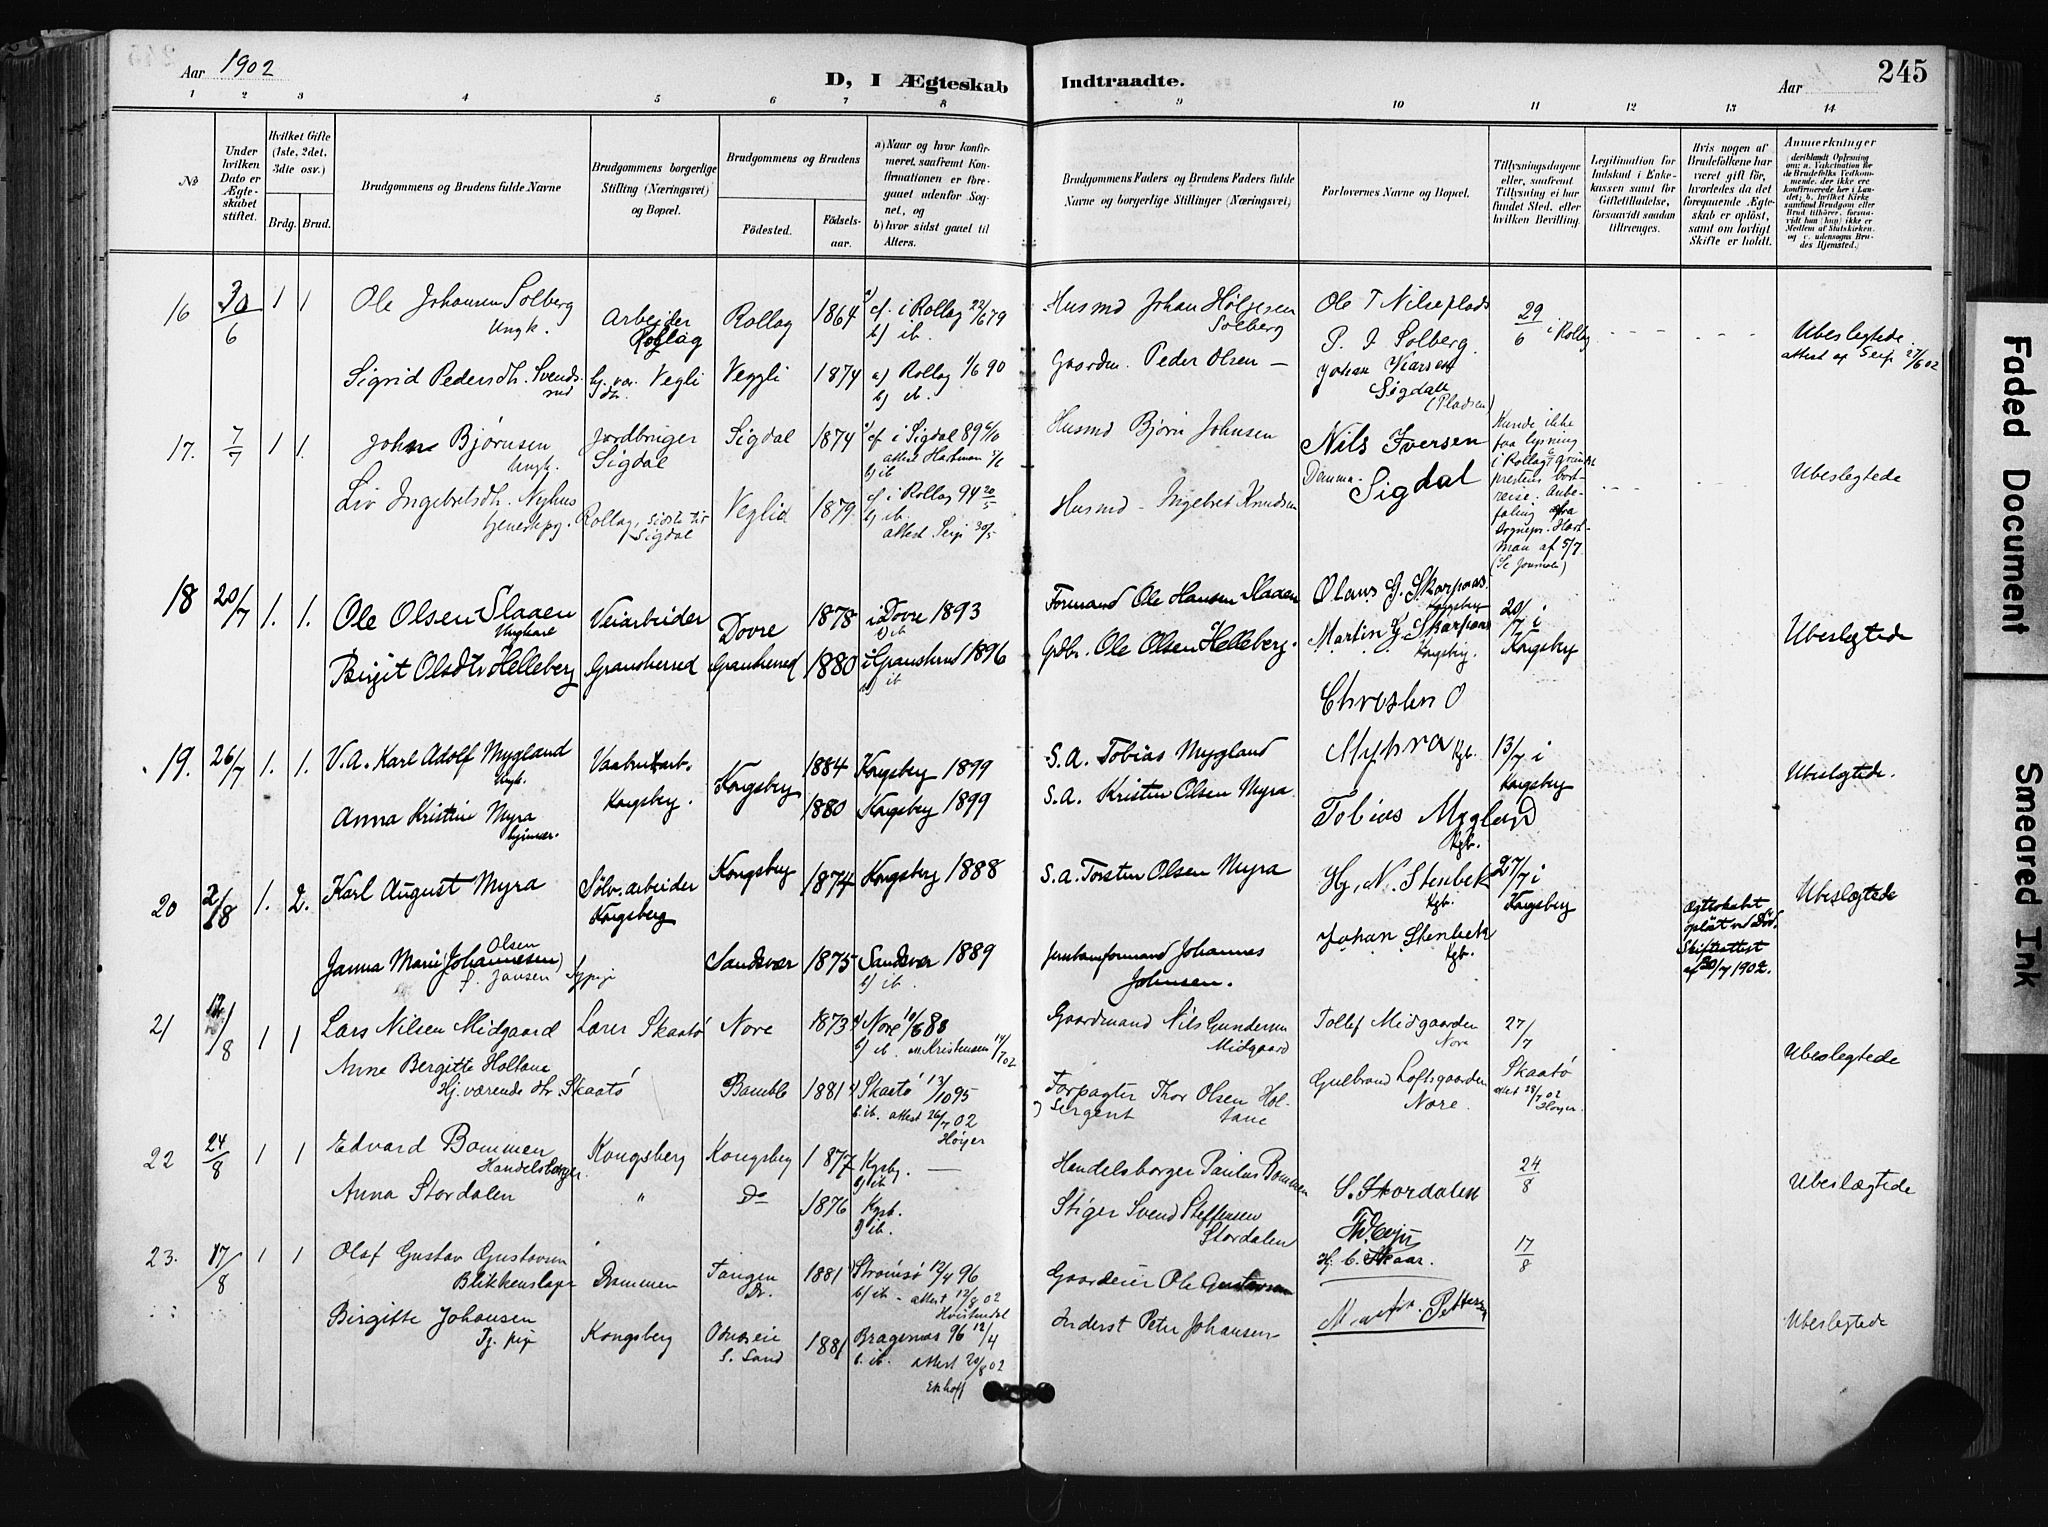 Aar 1902
D, I Ægteskab Indtraadte.
Aar
245
1 2 3 4 5 6 7 8 9 10 11 12 13 14
№
Under hvilken Dato er Ægteskabet stiftet.
Hvilket Gifte (1ste, 2det, 3die osv.)
Brdg. Brud.
Brudgommens og Brudens fulde Navne
Brudgommens borgerlige Stilling (Næringsvei) og Bopæl.
Brudgommens og Brudens
Fødested.
Fødselsaar.
a) Naar og hvor konfirmeret, saafremt Konfirmationen er foregaaet udenfor Sognet, og
b) hvor sidst gaaet til Alters.
Brudgommens Faders og Brudens Faders fulde Navne og borgerlige Stillinger (Næringsvei)
Forlovernes Navne og Bopæl.
Tillysningsdagene eller, saafremt Tillysning ei har fundet Sted, efter hvilken Bevilling.
Legitimation for Indskud i Enkekassen samt for Giftetilladelse, forsaavidt saadan tiltrænges.
Hvis nogen af Brudefolkene har været gift før, hvorledes da det foregaaende Ægteskab er opløst, samt om lovligt Skifte er holdt.
Anmerkninger
(deriblandt Oplysning om: a. Vakcination for de Brudefolks Vedkommende, der ikke ere konfirmerede her i Landet; b. hvilket Kirkesamfund Brudgom eller Brud tilhører, forsaavidt han (hun) ikke er Medlem af Statskirken, og c. udensogns Brudes Hjemsted.)
16 30/6 1 1 Ole Johansen Solberg
Ungk.
Arbeider
Rollag
Rollag 1864 a) cf. i Rollag 22/6 79
b) ib.
Husmd Johan Holgesen
Solberg
Ole T Nilseplads
P. J Solberg.
29/6 i Rollag
Ubeslegtede.
Sigrid Pedersdt. Svendsrud
Hj. vær. dt. Vegli
Veggli 1874 a) Rollag 1/6 90
b) ib.
Gaardm. Peder Olsen —
Johan
Sigdal
(Pladsen)
17. 7/7 1 1. John Bjørnsen
Ungk.
Jordbruger
Sigdal
Sigdal 1874 a) cf. i Sigdal 89
attest Hartman
b) ib
Husmd Bjørn Johnsen
Nils Iversen
Damma.
Sigdal
Kunde ikke
faa lysning
i Rollag
prestens bort-
reise. Anbe-
faling fra
Sognepr. Hart-
man af 5/7.
(Se Journalen)
Ubeslegtede
Liv Ingebretsdt. Nyhus
Rollag, sidste tid
Sigdal
Veglid 1879. cf. i Rollag 94 20/5
b) ib.
Husmd - Ingebret Knudsen
18 20/7 1. 1. Ole Olsen Slaaen
Ungkarl
Veiarbeider Dovre 1878 i Dovre 1893
b) ib
Formand Ole Hansen Slaaen
Olaus G. Skarpaas.
Kongsberg
20/7 i
Kongsberg
Ubeslegtede
Birgit Olsdtr Helleberg Gransherred Gransherred 1880 i Gransherred 1896
b) ib
Gdbr. Ole Olsen Helleberg.
Martin G. Skarpaas
Kongsberg.
19. 26/7 1. 1. V. A. Karl Adolf Mygland
Ungk.
Kongsberg.
Kongsberg 1884 Kongsberg 1899
S. A. Tobias Mygland
Christen O
Myhra Kgb.
13/7 i
Kongsberg
Ubeslegtede.
Anna Kristine Myra
1880 Kongsberg 1899
S. A. Kristen Olsen Myra
Tobias Mygland
Kgb.
20 2/8 1. 2. Karl August Myra
Sølv. arbeider
Kongsberg
Kongsberg 1874 Kongsberg 1888
S. A. Torsten Olsen Myra
Hj. N. Stenbek
Kgb.
27/7 i
Kongsberg
Ægteskabet
opløst ved Død.
Skifteattest
af 30/7 1902.
Ubeslægtede
Janna Marie (Johannesen) Olsen
f. Jansen Sypige
Sandsvær 1875 Sandsvær 1889
b) ib.
Johannes
Johnsen.
Johan Stenbek
Kgb.
21 12/8 1 1 Lars Nilsen Midgaard
Lærer Skaatø Nore 1873 a) Nore 10/6 88
b) ib. att Kristensen 14/7 02
Gaardmand Nils Gundersen
Midgaard
Tollef Midgaarden
Nore
27/7
Skaatø
attest 28/7 02
Høyer.
Ubeslegtede
Anne Bergitte Holtane
Hj. værende dtr. Skaatø
Bamble 1881 a) Skaatø 13/10 95
b. ib. attest 26/7 02
Høyer
Forpagter Thor Olsen Holtane
og Sergent
Gulbrand Loftsgaarden
Nore.
22 24/8 1 1 Edvard Bommen
Handelsborger
Kongsberg Kongsberg 1877 Kgsbg. —
b) ib.
Handelsborger Paulus Bommen
S. Stordalen
24/8
Ubeslægtede
Anna Stordalen
" Do 1876 Kgsb.
b) ib.
Stiger Svend Steffensen
Stordalen
23. 17/8 1 1 Olaf Gustav Gustavsen
Blikkenslager
Drammen Tangen
Dr.
1881 Strømsø 12/4 96
b) ib - attest 12/8 02
Gaardeier Ole Gustavsen
H. C. Skaar.
17/8
Birgitte Johansen
Tj. pige
Kongsberg
S. Sand
1881 Bragernæs 96 12/4
b. ib. attest 20/8 02
Ekhoff
Peter Johansen
Ubeslegtede
Faded Document
Smeared Ink